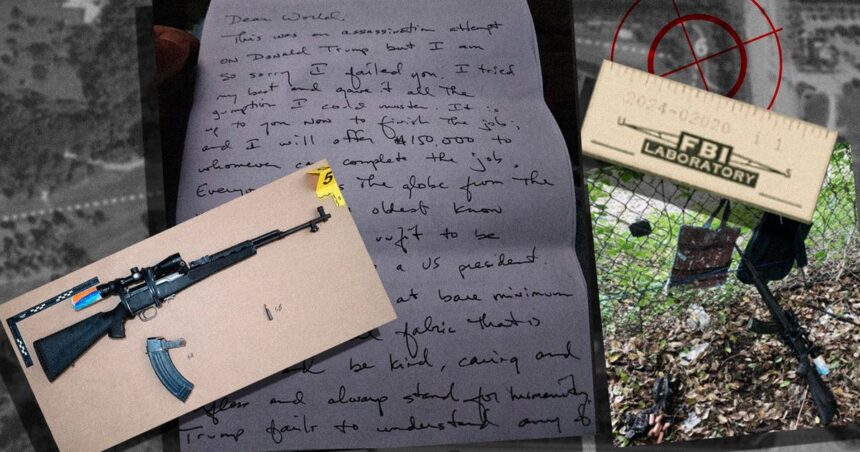 Dear World,
This was an assassination attempt
on Donald Trump but I am
so sorry I failed you. I tried
my best and gave it all the
gumption I could muster. It is
up to you now to finish the job;
and I will offer $150,000 to
whomever can complete the job.
the globe from the
oldest know
to be
a US president.
at bare minimum
fabric that is
be kind, caring and
and always stand for humanity.
Trump fails to understand any of
5
2024-02020 11
FBI
LABORATORY